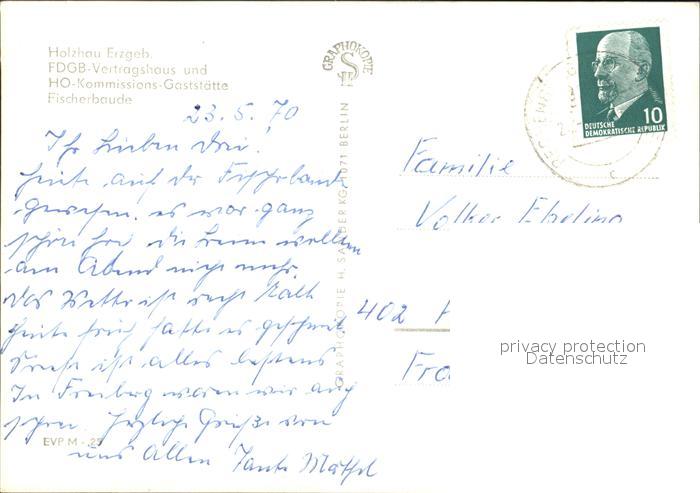 Holzhau Erzgeb.
FDGB-Vertragshaus und
HO-Kommissions-Gaststätte
Fischerbaude
23. 5. 70
Ihr Lieben Drei!
Heute auf der Fischerbaude
gewesen, es war ganz
schön hoch die Beine wollten
am Abend nicht mehr.
Das Wetter ist recht kalt
heute früh hatte es geschneit
Sonst ist alles bestens
In Freiberg waren wir auch
schon. Herzliche Grüße von
uns Allen Tante Mäthel
EVP M -,25
GRAPHOKOPIE
GRAPHOKOPIE H. SANDER KG, 1071 BERLIN
10
DEUTSCHE
DEMOKRATISCHE REPUBLIK
Familie
Volker
402 H
Fra
privacy protection
Datenschutz